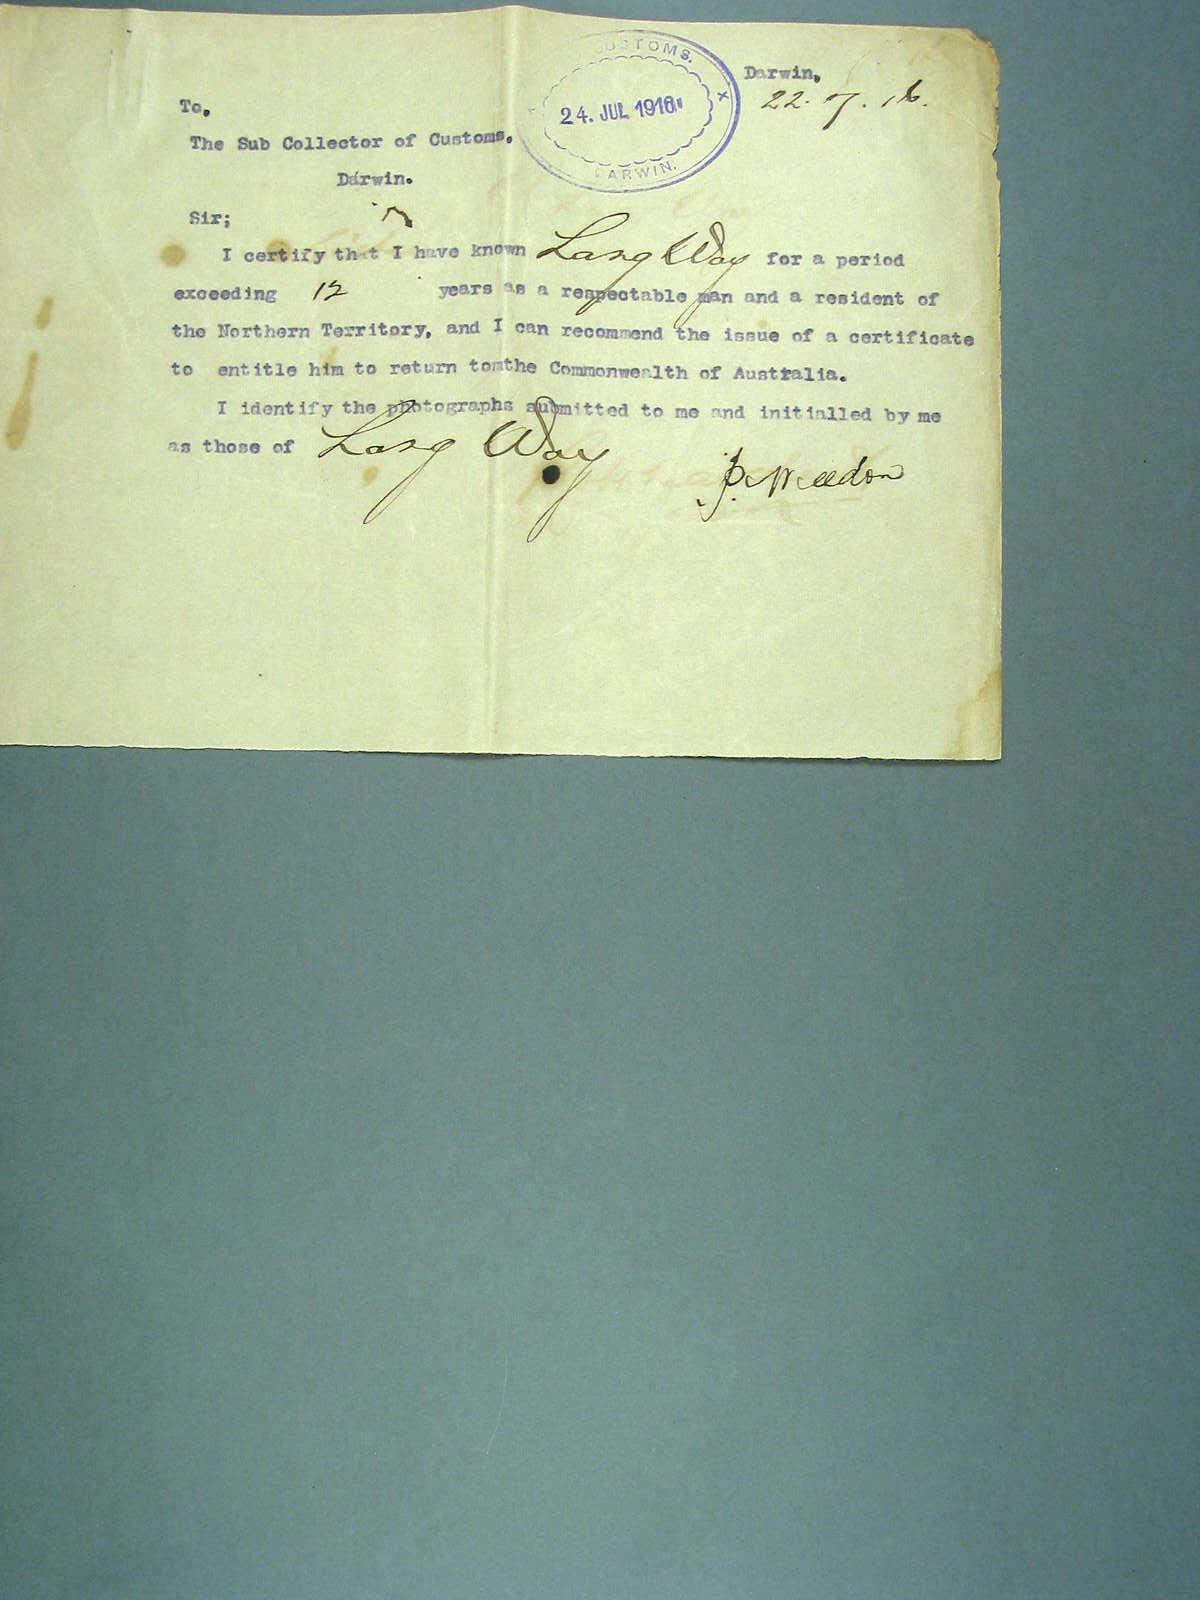 CUSTOMS.
24. JUL 1916
DARWIN.
Darwin,
22. 7. 16.
To,
The Sub Collector of Customs.
Darwin.
Sir;
I certify that I have known Lang Way for a period
exceeding 12 years as a respectable man and a resident of
the Northern Territory, and I can recommend the issue of a certificate
to entitle him to return tomthe Commonwealth of Australia.
I identify the photographs submitted to me and initialled by me
as those of Lang Way
Weedon